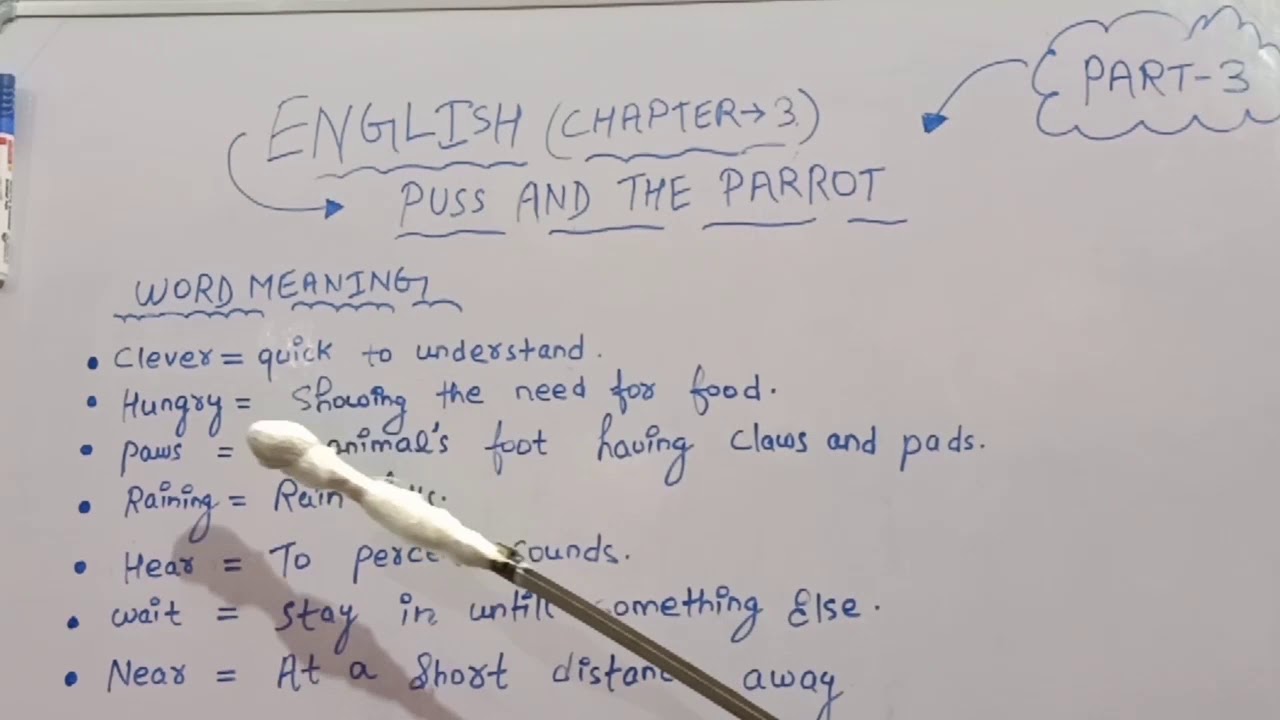 PART-3
ENGLISH (CHAPTER→3)
PUSS AND THE PARROT
WORD MEANING
• Clever = quick to understand.
• Hungry = Showing the need for food.
• Paws = animal's foot having claws and pads.
• Raining = Rain
• Hear = To sounds.
• wait = stay in untill something Else.
• Near = At a Short away